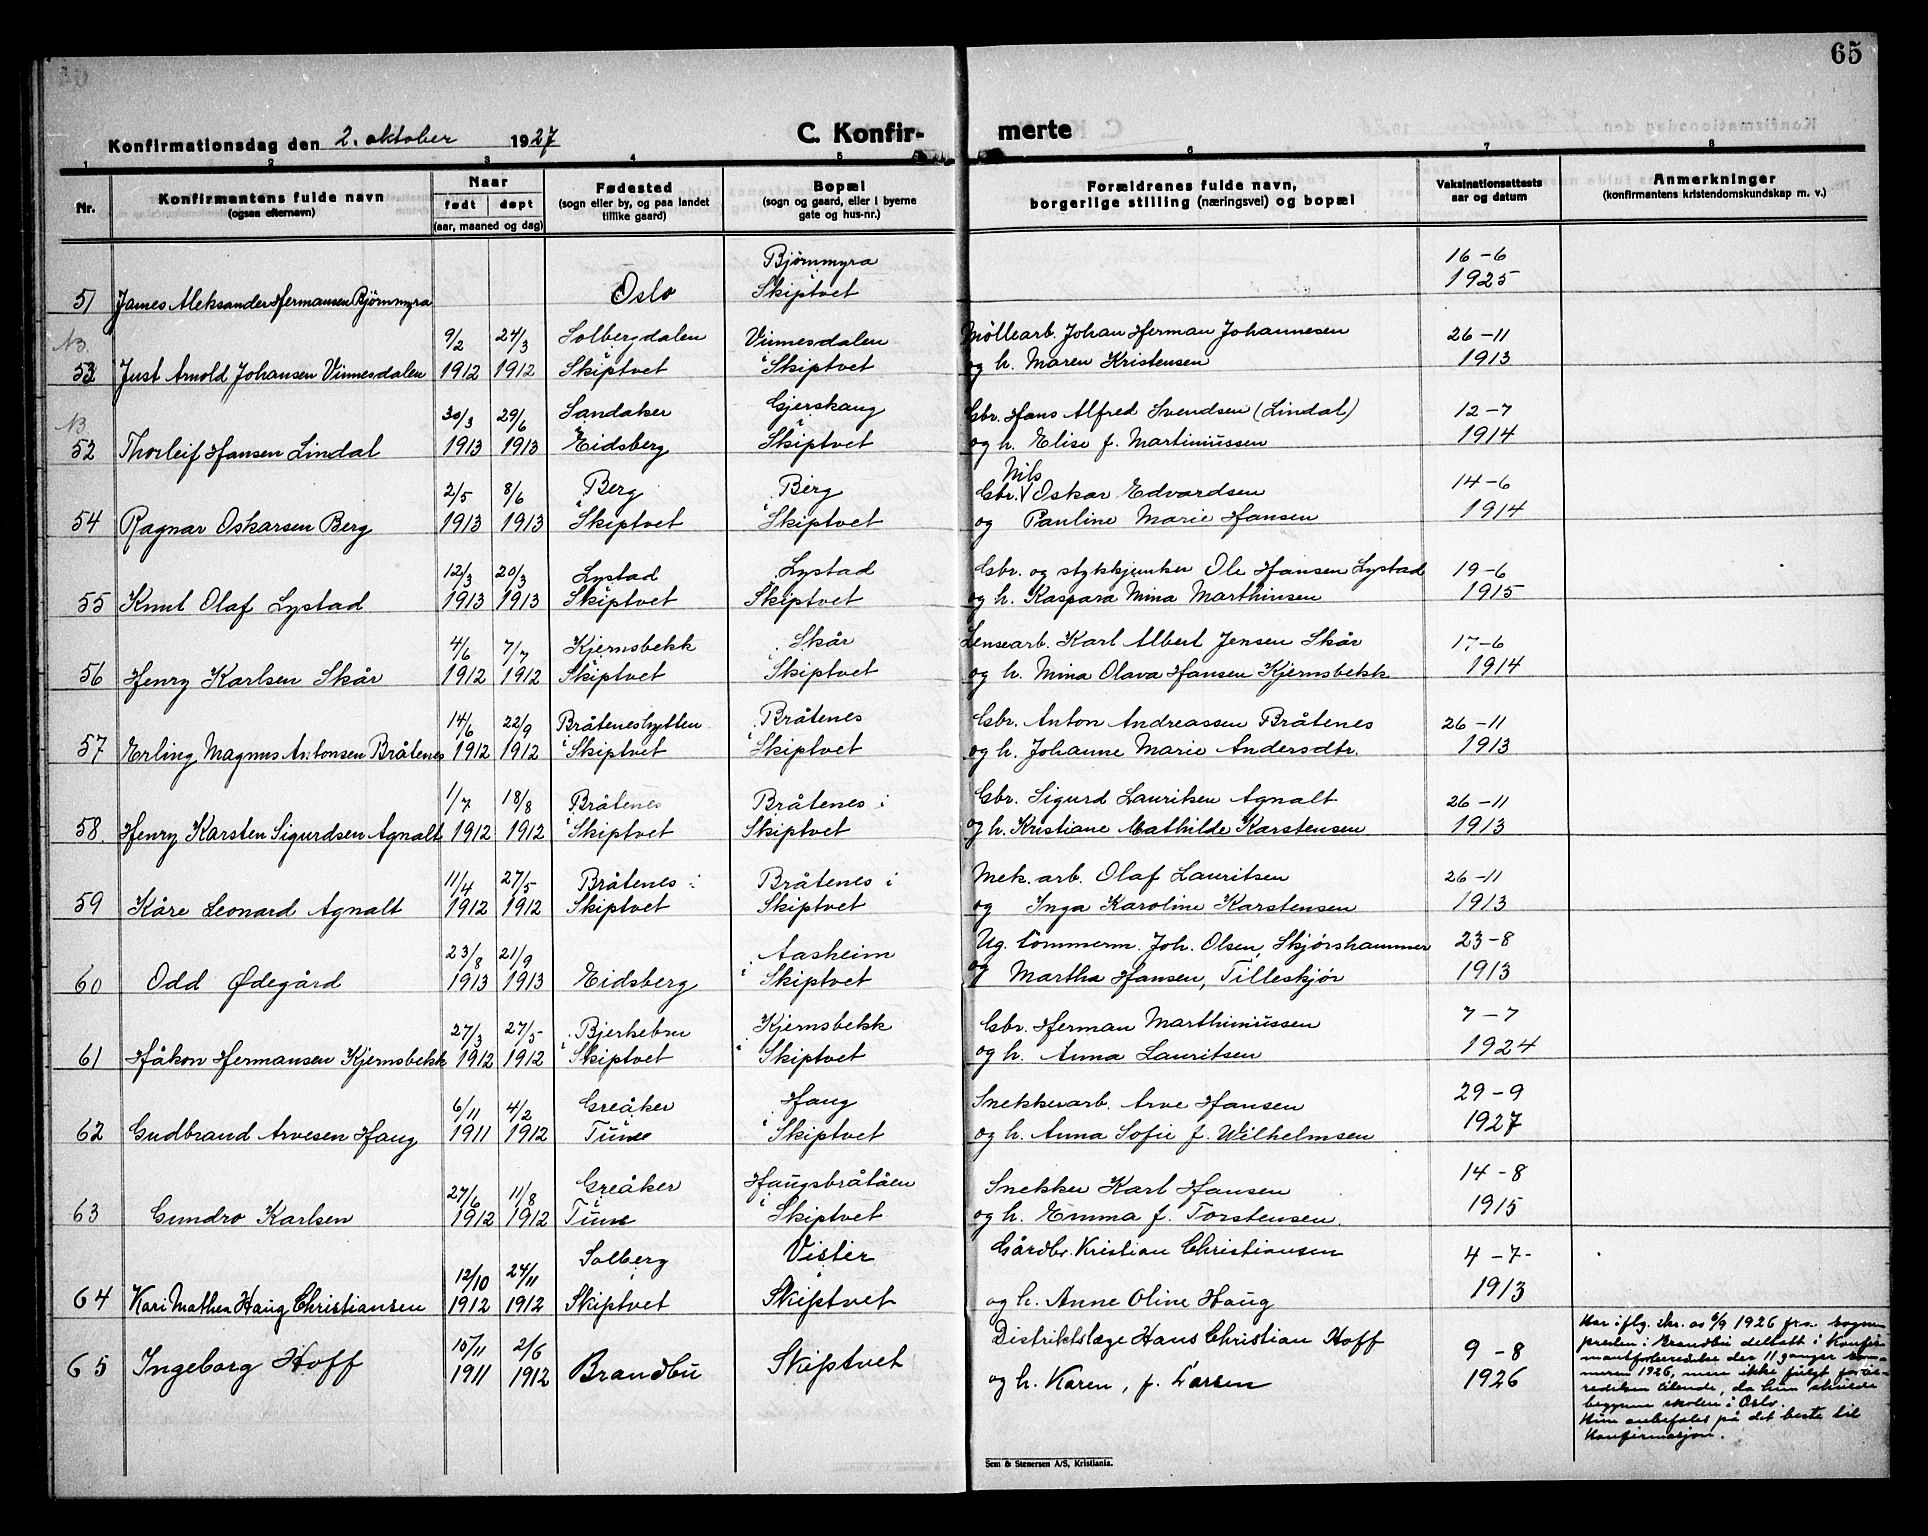 65
Konfirmationsdag den 2. oktober 1927
C. Konfir-
merte
1 2 3 4 5 6 7 8
Nr.
Konfirmantens fulde navn
(ogsaa efternavn)
Naar
født døpt
(aar, maaned og dag)
Fødested
(sogn eller by, og paa landet
tillike gaard)
Bopæl
(sogn og gaard, eller i byerne
gate og hus-nr.)
Forældrenes fulde navn,
borgerlige stilling (næringsvei) og bopæl
Vaksinationsattests
aar og datum
Anmerkninger
(konfirmantens kristendomskundskap m. v.)
Bjørnmyra 16-6
51 James Aleksander Hermansen Bjørnmyra Oslo Skiptvet 1925
NB. 9/2 24/3 Solbergdalen Vinnesdalen Møllearb. Johan Herman Johannesen 26-11
53 Just Arnold Johansen Vinnesdalen 1912 1912 i Skiptvet i Skiptvet og h. Maren Kristensen 1913
NB. 30/3 29/6 Sandaker Gjerskaug Gbr. Hans Alfred Svendsen (Lindal) 12-7
52 Thorleif Hansen Lindal 1913 1913 i Eidsberg i Skiptvet og h. Elise f. Martiniussen 1914
Nils
2/5 8/6 Berg Berg Gbr. V Oskar Edvardsen 14-6
54 Ragnar Oskarsen Berg 1913 1913 i Skiptvet i Skiptvet og Pauline Marie Hansen 1914
12/3 20/3 Lystad Lystad Gbr. og stykkjunker Ole Hansen Lystad 19-6
55 Knut Olaf Lystad 1913 1913 i Skiptvet i Skiptvet og h. Kaspara Mina Marthinsen 1915
4/6 7/7 Kjernsbekk Skår Lensearb. Karl Albert Jensen Skår 17-6
56 Henry Karlsen Skår 1912 1912 i Skiptvet i Skiptvet og h. Mina Olava Hansen Kjernsbekk 1914
14/6 22/9 Bråteneshytten Bråtenes Gbr. Anton Andreassen Bråtenes 26-11
57 Erling Magnus Antonsen Bråtenes 1912 1912 i Skiptvet i Skiptvet og h. Johanne Marie Andersdtr. 1913
1/7 18/8 Bråtenes Bråtenes i Gbr. Sigurd Lauritsen Agnalt 26-11
58. Henry Karsten Sigurdsen Agnalt 1912 1912 i Skiptvet Skiptvet og h. Kristiane Mathilde Karstensen 1913
11/4 27/5 Bråtenes i Bråtenes i Mek. arb. Olaf Lauritsen 26-11
59 Kåre Leonard Agnalt 1912 1912 Skiptvet Skiptvet og Inga Karoline Karstensen 1913
23/8 21/9 Aasheim Ug. tømmerm. Joh. Olsen, Skjørshammer 23-8
60 Odd Ødegård 1913 1913 Eidsberg i Skiptvet og Martha Hansen, Tilleskjør 1913
27/3 27/5 Bjerkebru Kjernsbekk Gbr. Herman Marthiniussen 7-7
61 Håkon Hermansen Kjernsbekk 1912 1912 i Skiptvet i Skiptvet og h. Anna Lauritsen 1924
6/11 4/2 Greåker Haug Snekkerarb. Arve Hansen 29-9
62 Gudbrand Arvesen Haug 1911 1912 i Tune i Skiptvet og h. Anna Sofie f. Wilhelmsen 1927
27/6 11/8 Greåker Haugsbråtåen Snekker Karl Hansen 14-8
63 Gundro Karlsen 1912 1912 i Tune i Skiptvet og h. Emma f. Torstensen. 1915
12/10 24/11 Solberg Vister Gårdbr. Kristian Christiansen 4-7-
64 Kari Mathea Haug Christiansen 1912 1912 i Skiptvet i Skiptvet og h. Anne Oline Haug 1913
15/11 2/6 Distriktslæge Hans Christian Hoff 9-8
65 Ingeborg Hoff 1911 1912 Brandbu Skiptvet og h. Karen, f. Larsen 1926
Har iflg. skr. av 6/9 1926 fra sogne-
presten i Brandbu deltatt i Konfir-
mantforberedelse der 11 ganger som-
meren 1926, men ikke fulgt forbe-
redelsen tilende, da hun skulde
begynne skolen i Oslo.
Hun anbefales på det beste til
Konfirmasjon.
Sem & Stenersen A/S, Kristiania.